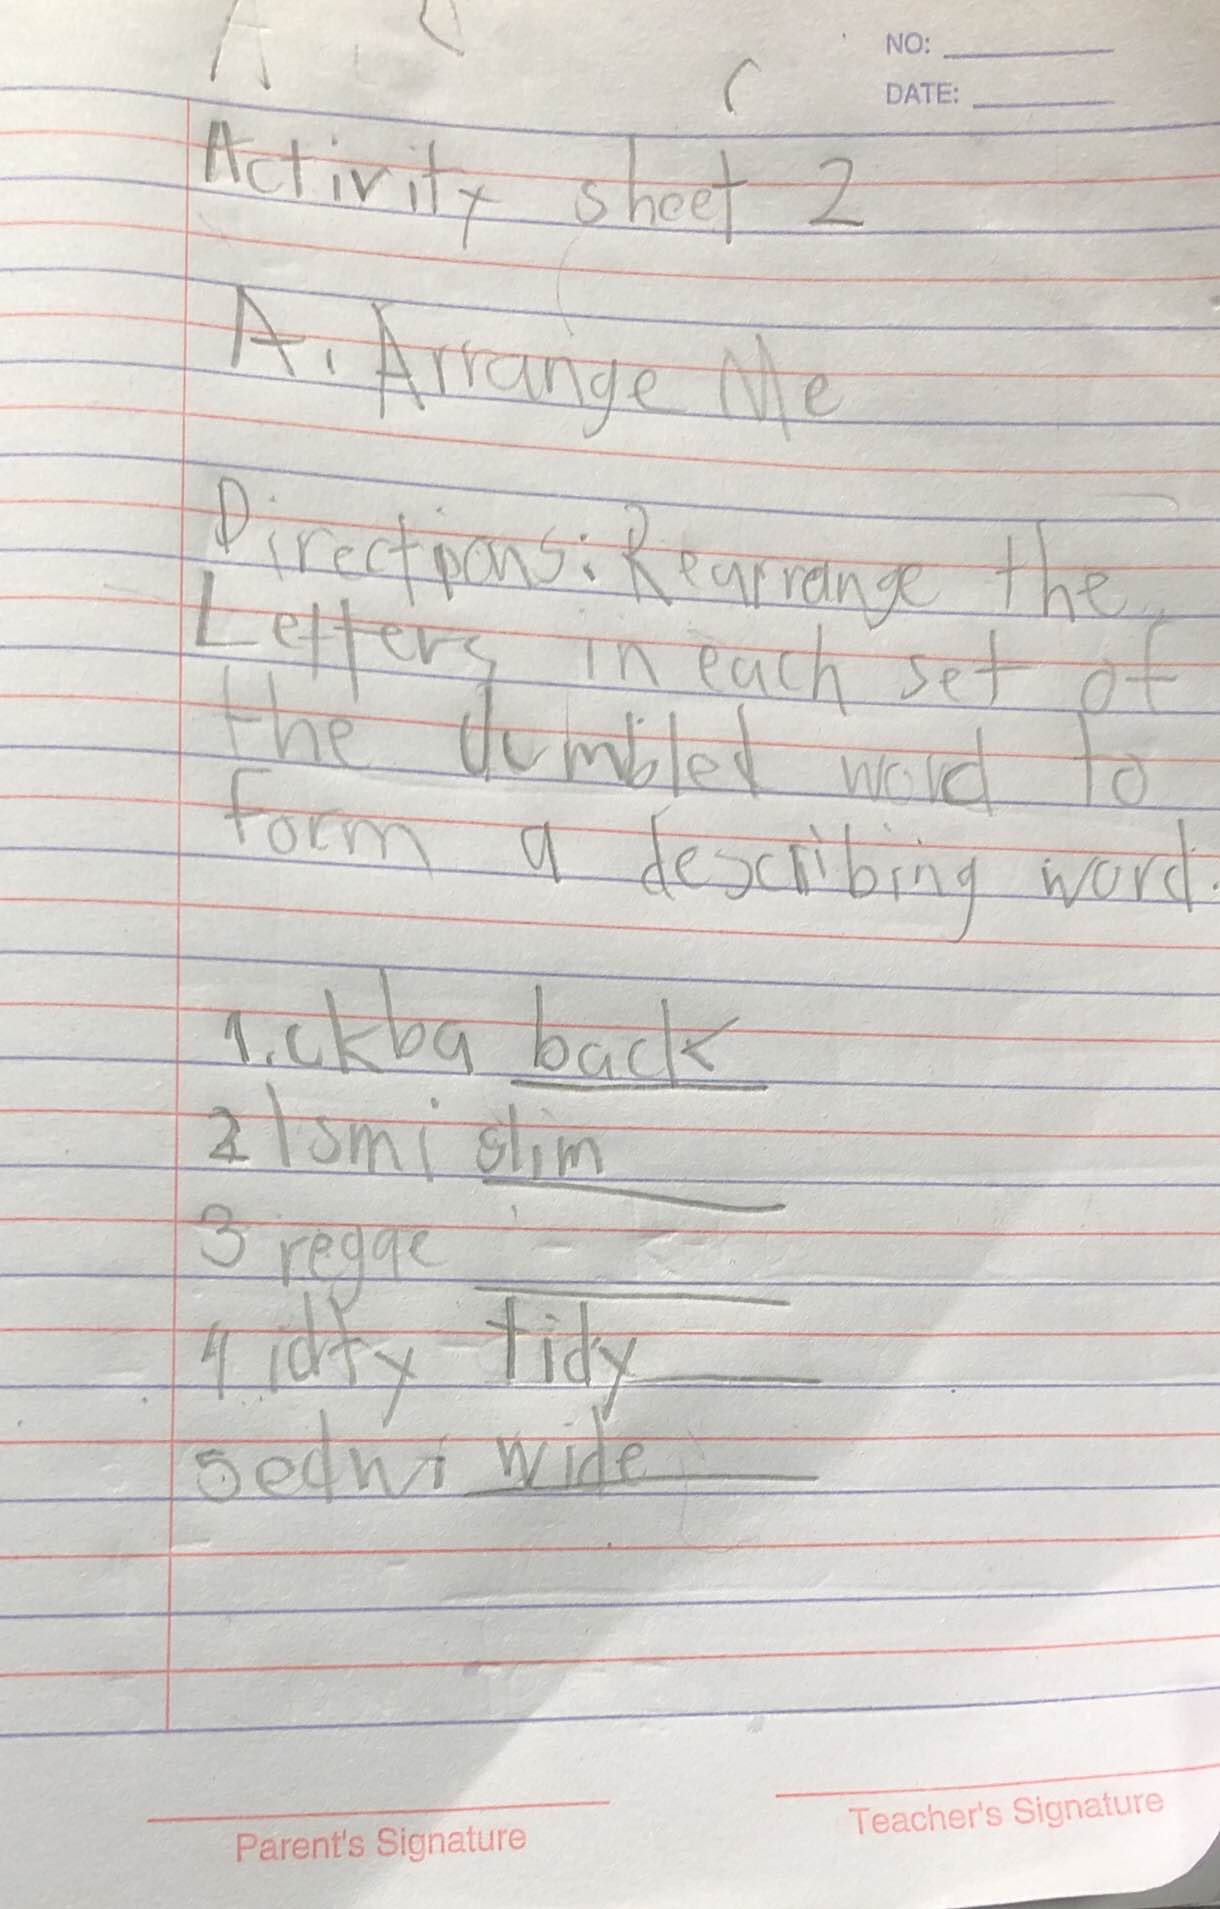 NO:
DATE:
Activity sheet 2
A. Arrange Me
Directions: Rearrange the
Letters in each set of
the dumbled word to
form a describing word.
1. ckba back
2 lsmi slim
3 regae
4 idty tidy
5 edwi wide
Parent's Signature
Teacher's Signature